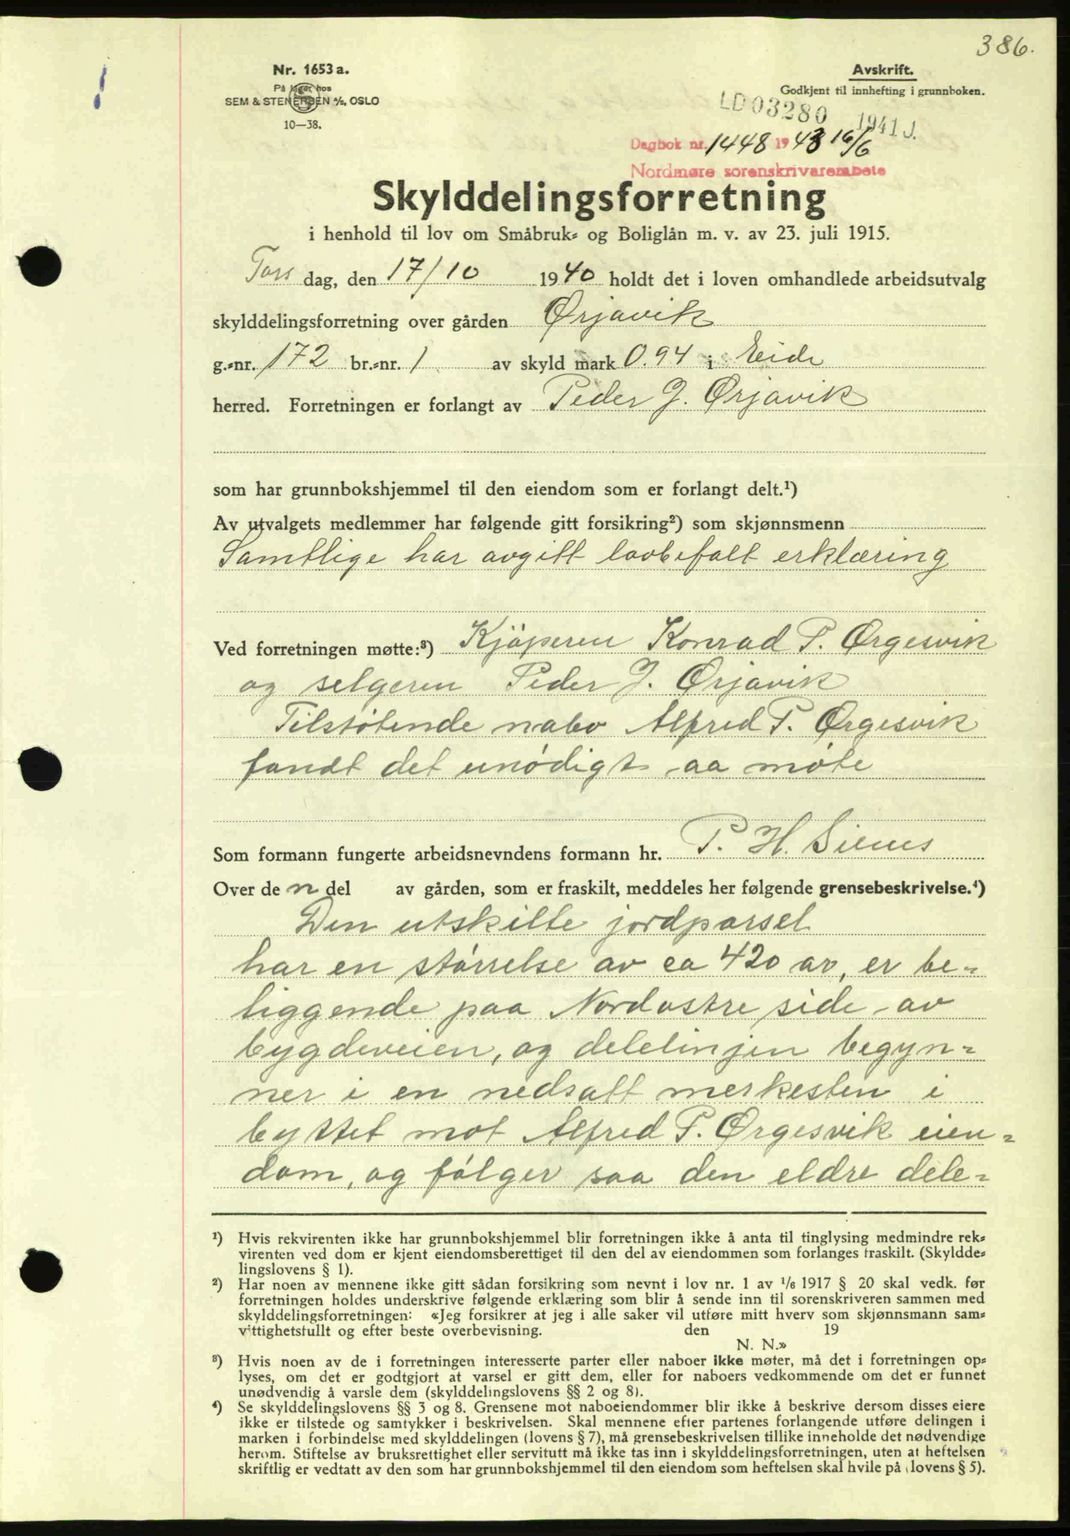 386.
Nr. 1653 a.
På lager hos
SEM & STENERSEN A/S, OSLO
10—38.
Avskrift.
Godkjent til innhefting i grunnboken.
LD 03280 1941 J.
Dagbok nr. 1448 1943 16/6
Nordmøre sorenskriverembete
Skylddelingsforretning
i henhold til lov om Småbruk- og Boliglån m. v. av 23. juli 1915.
Tors dag, den 17/10 1940 holdt det i loven omhandlede arbeidsutvalg
skylddelingsforretning over gården Ørjavik
g.-nr. 172 br.-nr. 1 av skyld mark 0.94 i Eide
herred. Forretningen er forlangt av Peder J. Ørjavik
som har grunnbokshjemmel til den eiendom som er forlangt delt.¹)
Av utvalgets medlemmer har følgende gitt forsikring²) som skjønnsmenn
Samtlige har avgitt lovbefalt erklæring
Ved forretningen møtte:³) Kjøperen Konrad P. Ørgesvik
og selgeren Peder J. Ørjavik
Tilstøtende nabo Alfred P. Ørgesvik
fandt det unødigt aa møte
Som formann fungerte arbeidsnevndens formann hr. P. H. Silnes
Over de n del av gården, som er fraskilt, meddeles her følgende grensebeskrivelse.⁴)
Den utskilte jordparsel
har en størrelse av ca 420 ar, er be-
liggende paa Nordøstre side av
bygdeveien, og delelinjen begyn-
ner i en nedsatt merkesten i
byttet mot Alfred P. Ørgesvik eien-
dom, og følger saa den eldre dele-
¹) Hvis rekvirenten ikke har grunnbokshjemmel blir forretningen ikke å anta til tinglysing medmindre rek-
virenten ved dom er kjent eiendomsberettiget til den del av eiendommen som forlanges fraskilt. (Skyldde-
lingslovens § 1).
²) Har noen av mennene ikke gitt sådan forsikring som nevnt i lov nr. 1 av 1/6 1917 § 20 skal vedk. før
forretningen holdes underskrive følgende erklæring som blir å sende inn til sorenskriveren sammen med
skylddelingsforretningen: «Jeg forsikrer at jeg i alle saker vil utføre mitt hverv som skjønnsmann sam-
vittighetsfullt og efter beste overbevisning. den 19
N. N.»
³) Hvis noen av de i forretningen interesserte parter eller naboer ikke møter, må det i forretningen op-
lyses, om det er godtgjort at varsel er gitt dem, eller for naboers vedkommende om det er funnet
unødvendig å varsle dem (skylddelingslovens §§ 2 og 8).
⁴) Se skylddelingslovens §§ 3 og 8. Grensene mot naboeiendommer blir ikke å beskrive dersom disses eiere
ikke er tilstede og samtykker i beskrivelsen. Skal mennene efter partenes forlangende utføre delingen i
marken i forbindelse med skylddelingen (lovens § 7), må grensebeskrivelsen tillike inneholde det nødvendige
herom. Stiftelse av bruksrettighet eller servitutt må ikke tas inn i skylddelingsforretningen, uten at heftelsen
skriftlig er vedtatt av den som har grunnbokshjemmel til den eiendom som heftelsen skal hvile på (lovens § 5).